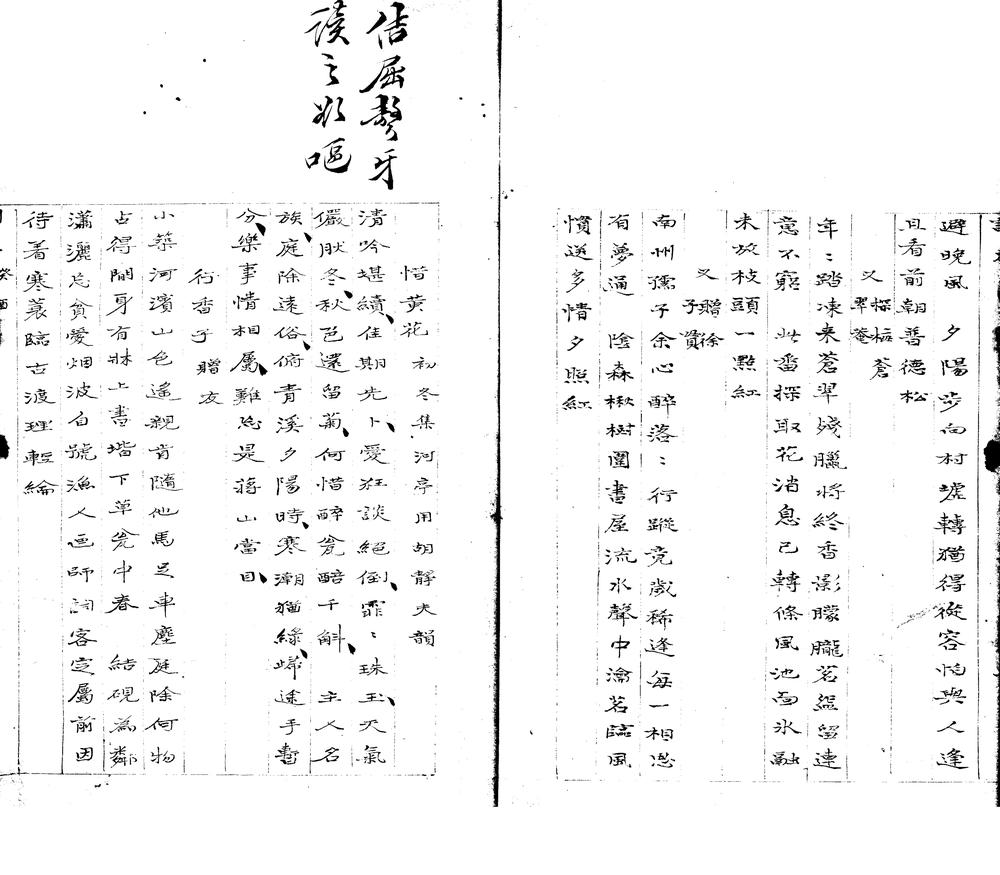 避晚風　夕陽步向村墟轉猶得從容怕與人逢
且看前朝普德松
又　探梅蒼翠菴
年〻踏凍来蒼翠殘臘将終香影朦朧茗盌留連
意不窮　此番探取花消息已轉條風池面氷融
未放枝頭一點紅
又　贈徐子賓
南州孺子余心醉落〻行蹤竞歲稀逢每一相思
有夢通　陰森楸樹圍書屋流水聲中瀹茗臨風
慣送多情夕照紅
佶屈聱牙
讀之欲嘔
惜黄花　初冬集河亭用胡靜夫韻
清吟堪續佳期先卜愛狂談絕倒霏〻珠玉天氣
儼肰冬秋色還留菊何惜醉瓮醅千斛　主人名
族庭除遠俗俯青溪夕陽時寒潮猶緑歸途手暫
分樂事情相屬難忘是蒋山當目
行香子　贈友
小築河濱山色遙親肯隨他馬足車塵庭除何物
占得閒身有牀上書堦下草瓮中春　結硯為鄰
瀟灑忘貧愛烟波自號漁人画師詞客定屬前因
待着寒蓑臨古渡理輕綸